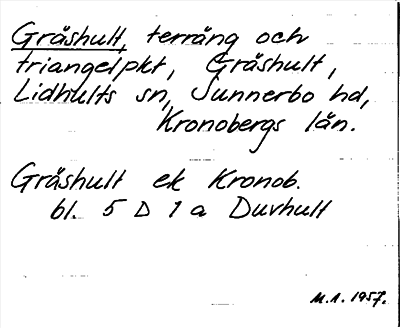 Gråshult, terräng och
triangelpkt, Gråshult,
Lidhults sn, Sunnerbo hd,
Kronobergs län.
Gråshult ek Kronob.
bl. 5 D 1 a Duvhult
M.A. 1957.